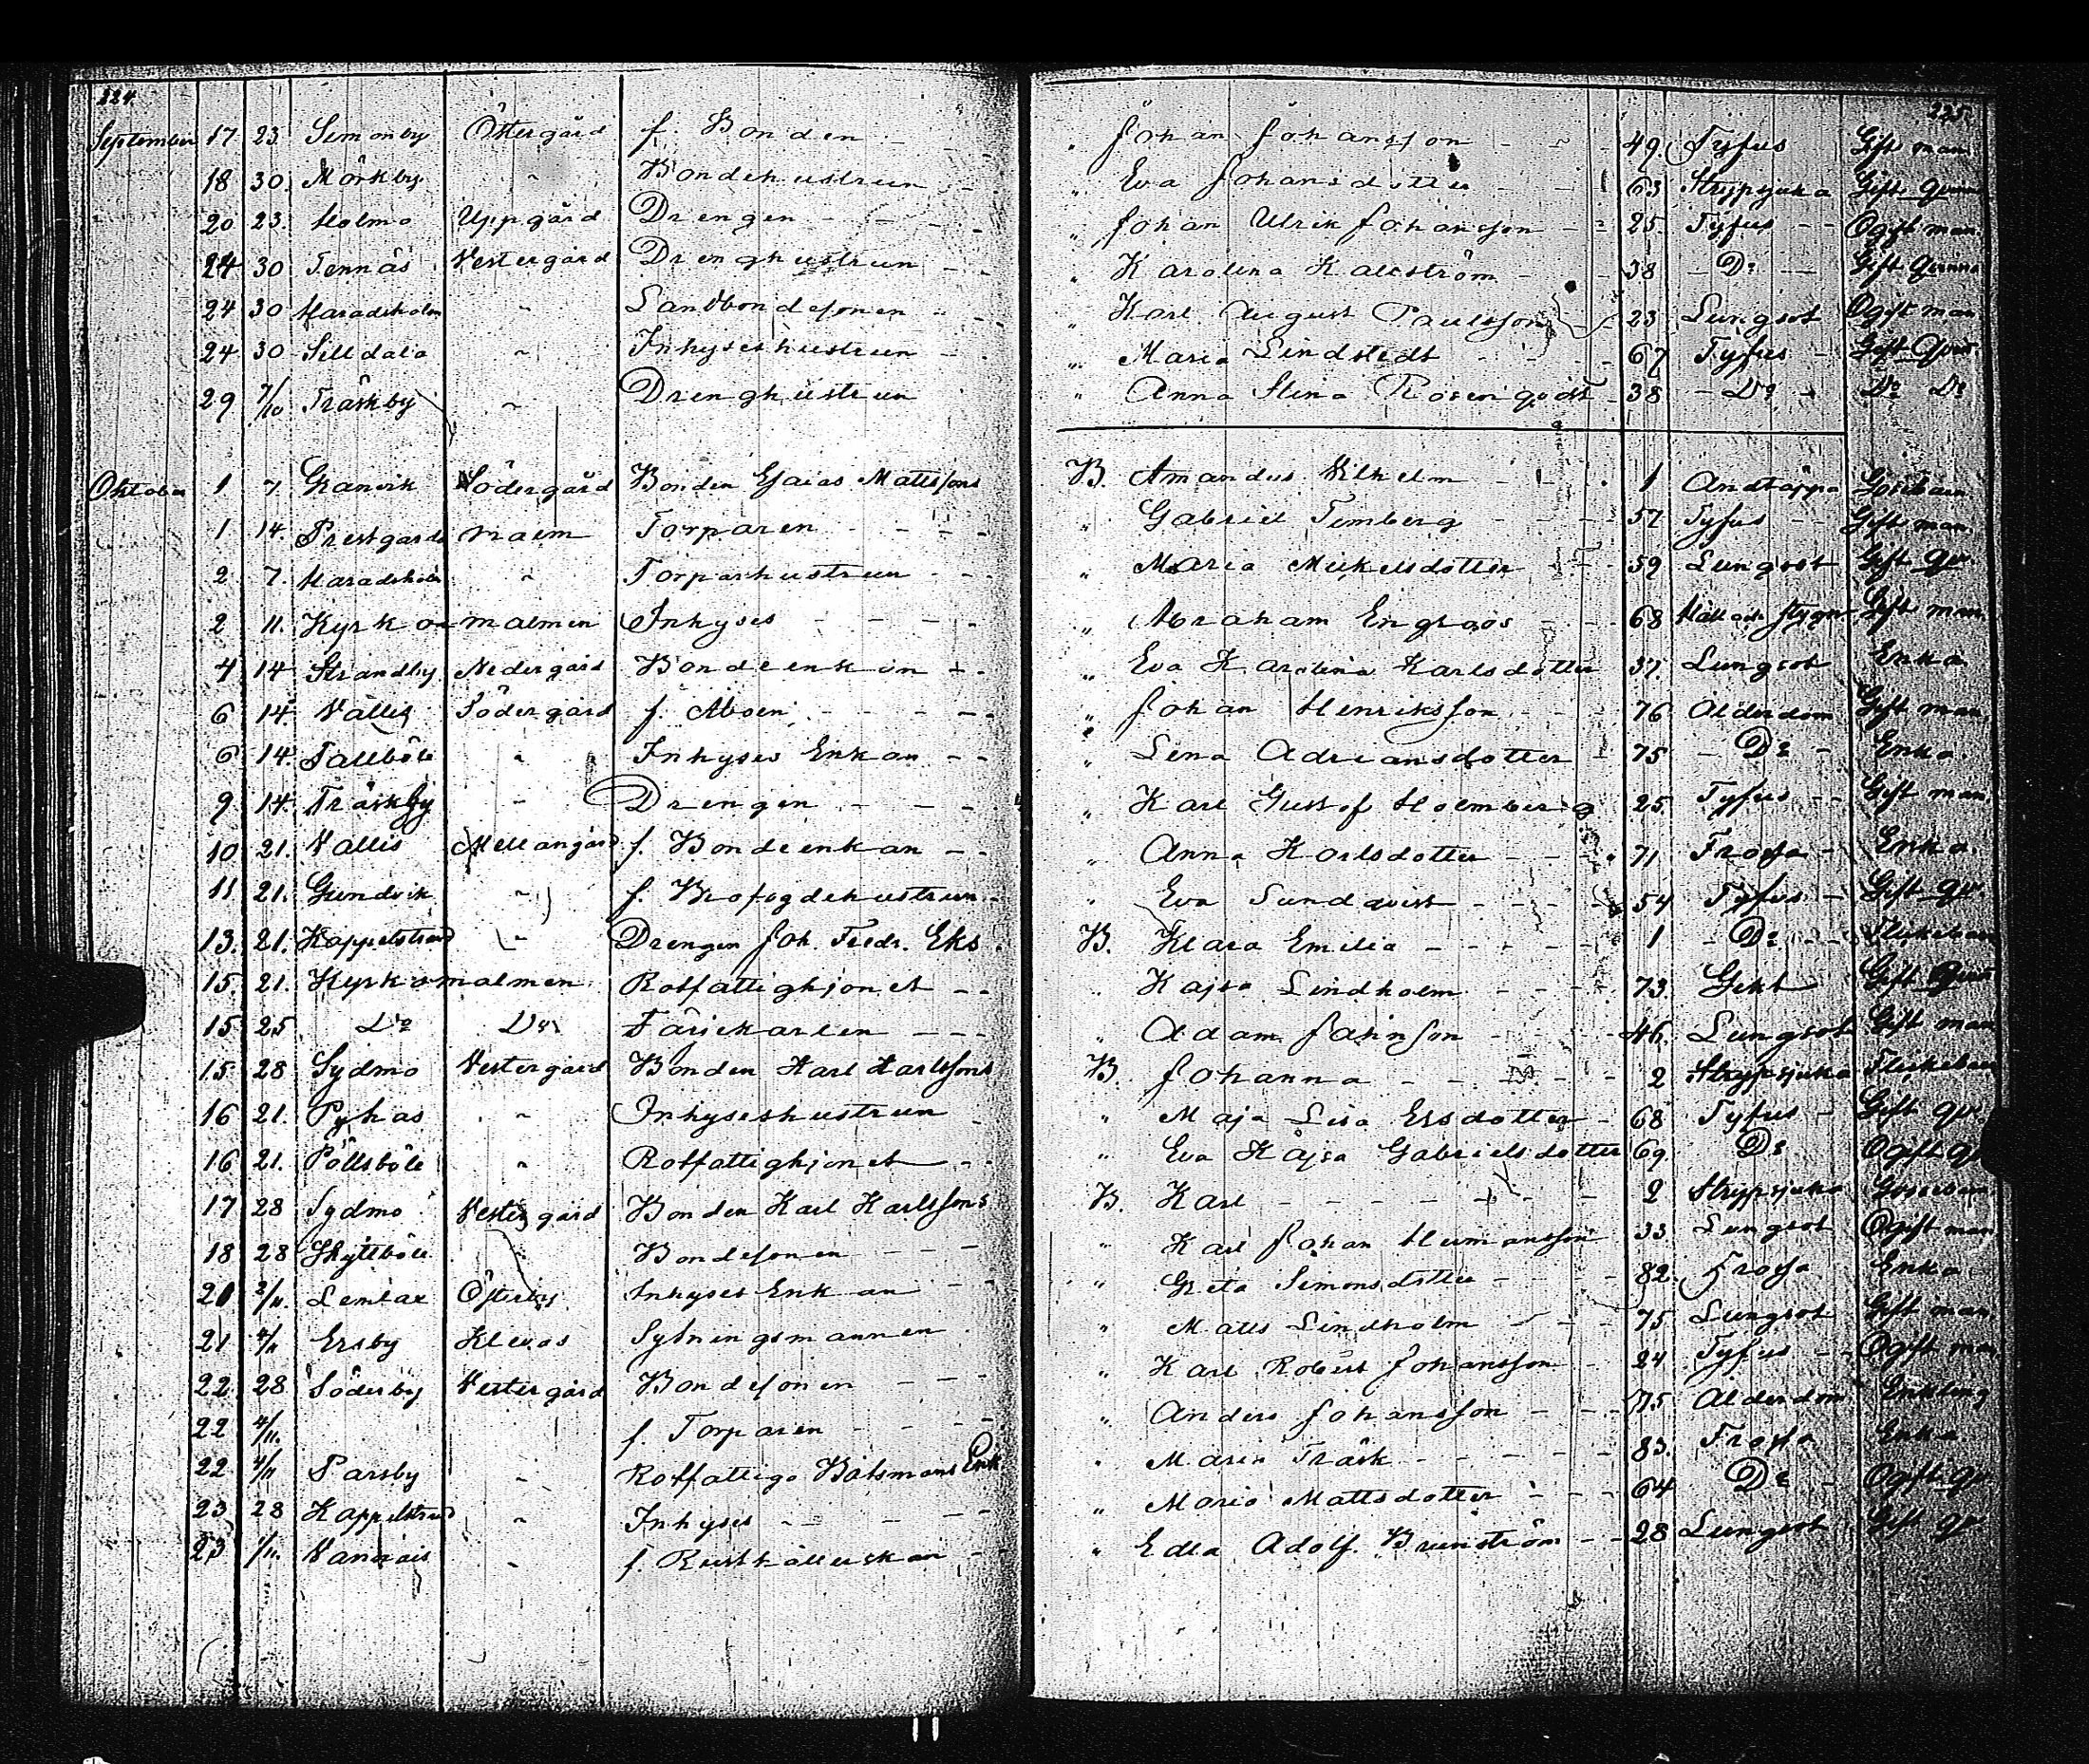 224. 225.
September 17 23. Simonby Östergård f. Bonden " Johan Johansson 49. Tyfus Gift man.
18 30. Mörkby " Bondehustrun " Eva Johansdotter 63 Strypsjuka Gift. Qvinna
20 23. Holmo Uppgård Drengen " Johan Ulrik Johansson 25. Tyfus Ogift man.
24 30 Tennäs Vestergård Drenghustrun " Karolina Kallström 38 Do Gift Qvinna
24 30 Haradsholm " Landbondesonen " Karl August Paulsson 23 Lungsot Ogift man
24 30 Silldala " Inhyseshustrun " Maria Lindstedt 67 Tyfus Gift Qvin.
29 7/10 Träskby " Drenghustrun " Anna Stina Rosenqvist 38 Do Do Do
Oktober 1 7 Granvik Södergård Bonden Esaias Mattssons B. Amandus Vilhelm 1 Andtäppa Gossebarn
1 14. Prestgårds malm Torparen " Gabriel Temberg 57 Tyfus Gift man.
2 7. Haradsholm " Torparhustrun " Maria Mickelsdotter 59 Lungsot Gift qv.
2 11. Kyrkomalmen Inhyses " Abraham Engroos 68 Håll och stygn Gift man.
4 14 Strandby Nedergård Bondeenkan " Eva Karolina Karlsdotter 37. Lungsot Enka
6 14. Vallis Södergård f. Åboen " Johan Henriksson 76 Ålderdom Gift man.
6 14. Tallböle " Inhyses Enkan " Lena Adriansdotter 75 Do Enka
9 14. Träskby " Drengen " Karl Gustof Holmberg 25. Tyfus Gift man.
10 21. Vallis Mellangård f. Bondeenkan " Anna Karlsdotter 71 Frossa Enka
11 21. Gundvik " f. Brofogdehustrun " Eva Sundqvist 54 Tyfus Gift qv.
13. 21. Kappelstrand " Drengen Joh. Fredr. Eks B. Klara Emilia 1 Do Flickebarn
15. 21. Kyrkomalmen Rotfattighjonet " Kajsa Lindholm 73. Gikt Gift Qvin
15 25 Do Do Färjekarlen " Adam Jahnson 46. Lungsot Gift man
15 28 Sydmo Vestergård Bonden Karl Karlssons B. Johanna 2 Strypsjuka Flickebarn
16 21. Pyhas " Inhyseshustrun " Maja Lisa Ersdotter 68 Tyfus Gift qv.
16 21. Pöllsböle " Rotfattighjonet " Eva Kajsa Gabrielsdotter 69. Do Ogift qv
17 28 Sydmo Vestergård Bonden Karl Karlssons B. Karl 2 Strypsjuka Gossebarn
18 28 Skyttböle " Bondesonen " Karl Johan Hermansson 33. Lungsot Ogift man
20 2/11. Lemlax Österby Inhyses Enkan " Greta Simonsdotter 82. Frossa Enka
21 4/11 Ersby Klevas Sytningsmannen " Matts Lindholm 75 Lungsot Gift man.
22 28 Söderby Vestergård Bondesonen " Karl Robert Johansson 24 Tyfus Ogift man
22 4/11. f. Torparen " Anders Johansson 75 Ålderdom Enkling
22 4/11 Parsby " Rotfattiga Båtsmans Enk " Maria Träsk 83. Frossa Enka
23 28 Kappelstrand " Inhyses " Maria Mattsdotter 64 Do Ogift qv.
23 1/11. " f. Rusthållerskan " Edla Adolf. Brunström 28 Lungsot Gift qv.